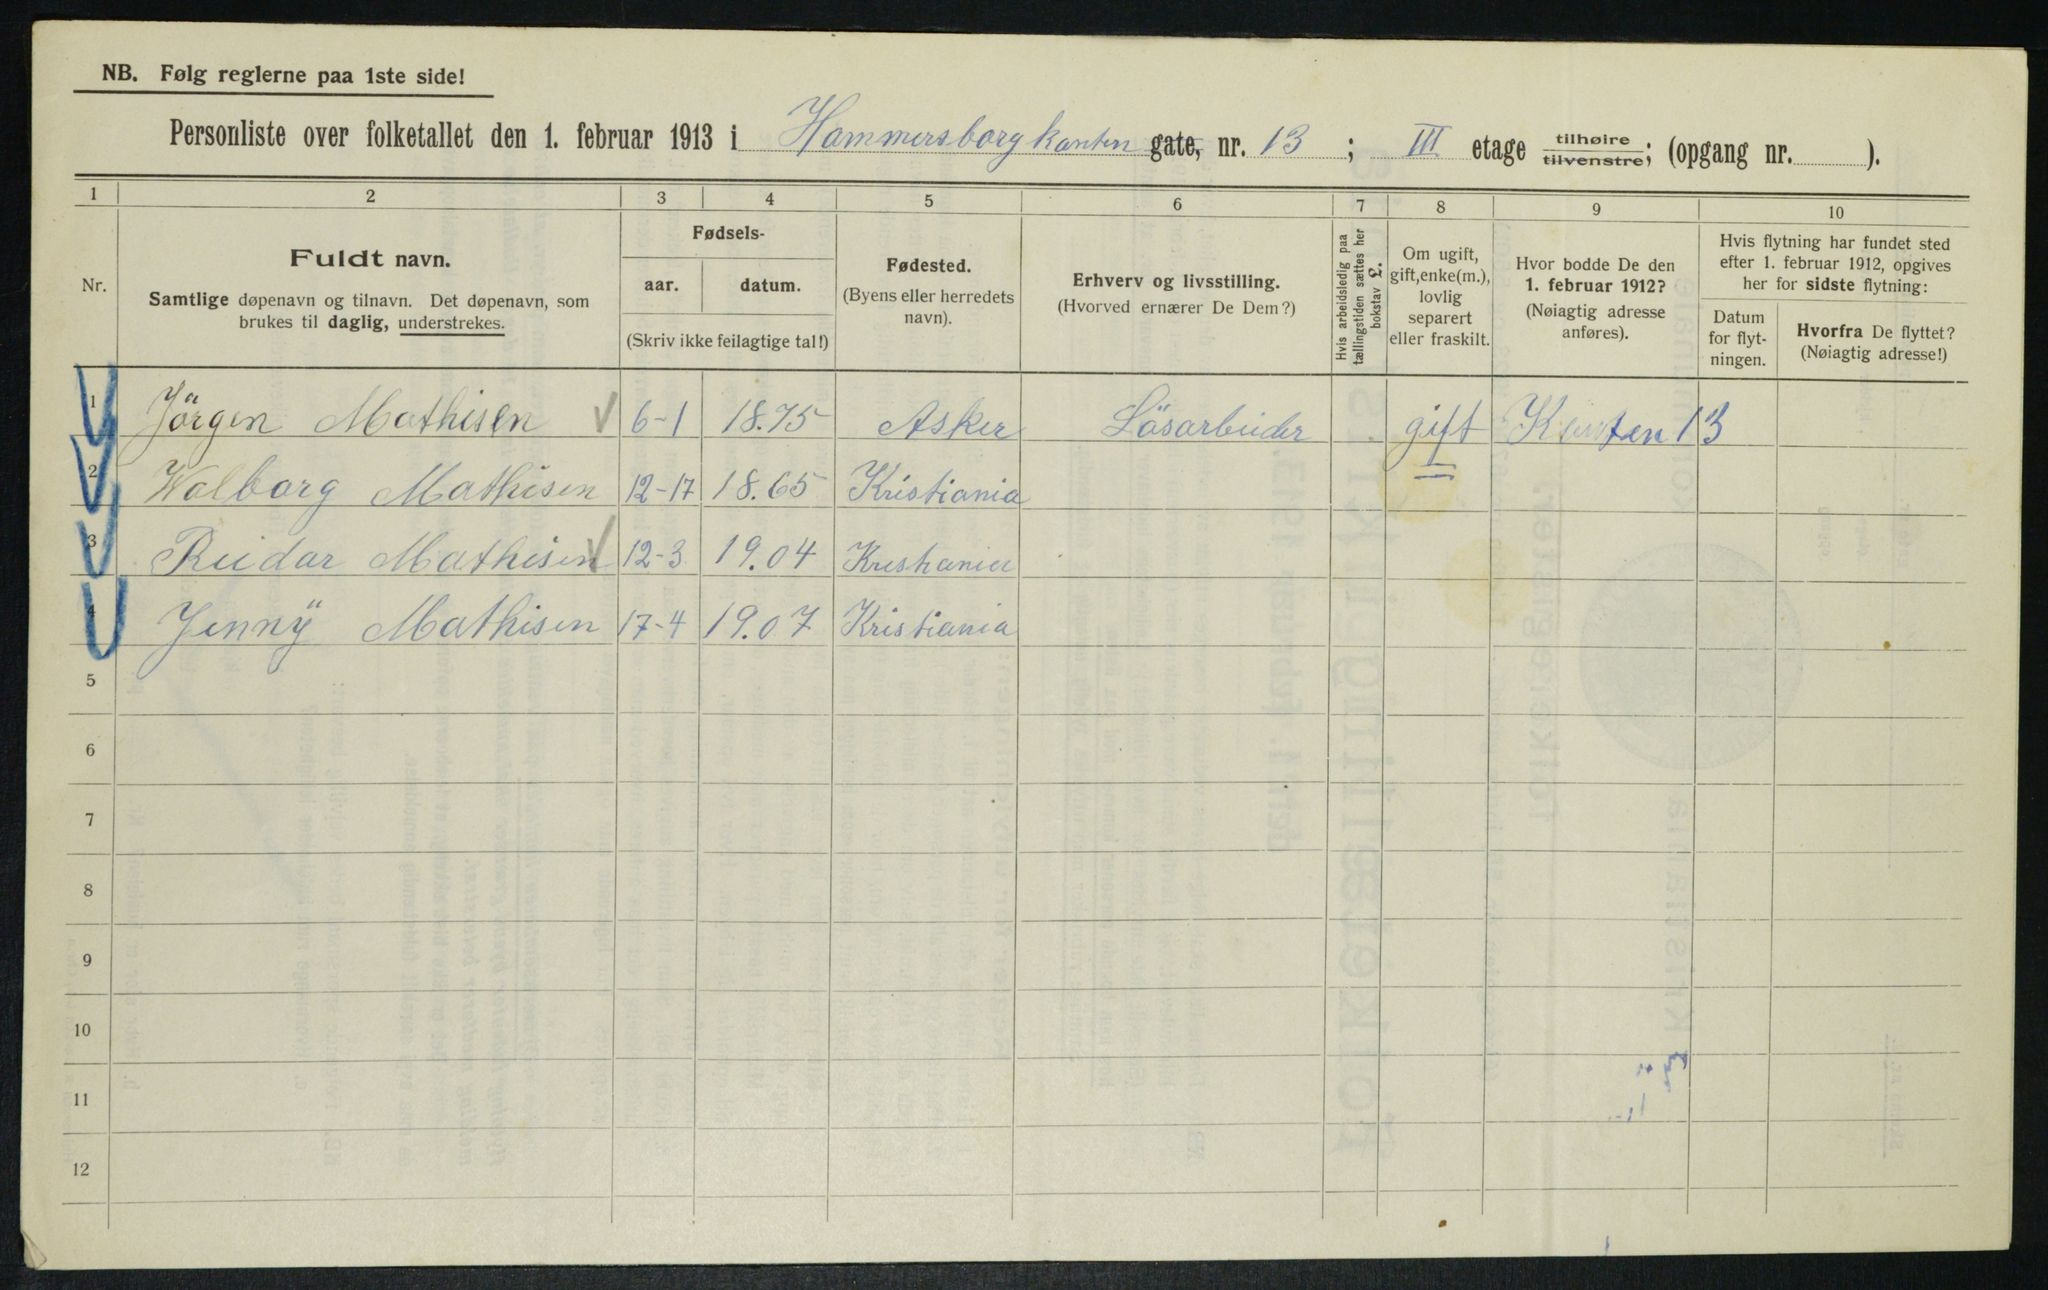 NB. Følg reglerne paa 1ste side!
Personliste over folketallet den 1. februar 1913 i Hammersborgkanten gate, nr. 13 ; III etage tilhøire tilvenstre; (opgang nr. ).
1 2 3 4 5 6 7 8 9 10
Nr.
Fuldt navn.
Samtlige døpenavn og tilnavn. Det døpenavn, som
brukes til daglig, understrekes.
Fødsels-
aar. datum.
(Skriv ikke feilagtige tal!)
Fødested.
(Byens eller herredets
navn).
Erhverv og livsstilling.
(Hvorved ernærer De Dem?)
Hvis arbeidsledig paa
tællingstiden sættes her
bokstav L.
Om ugift,
gift, enke(m.),
lovlig
separert
eller fraskilt.
Hvor bodde De den
1. februar 1912?
(Nøiagtig adresse
anføres).
Hvis flytning har fundet sted
efter 1. februar 1912, opgives
her for sidste flytning:
Datum
for flyt-
ningen.
Hvorfra De flyttet?
(Nøiagtig adresse!)
1 Jörgen Mathisen 6-1 18.75 Asker Lösarbeider gift Kanten 13
2 Walborg Mathisen 12-17 18.65 Kristiania
3 Reidar Mathisen 12-3 19.04 Kristiania
4 Jenny Mathisen 17-4 19.07 Kristiania
5
6
7
8
9
10
11
12